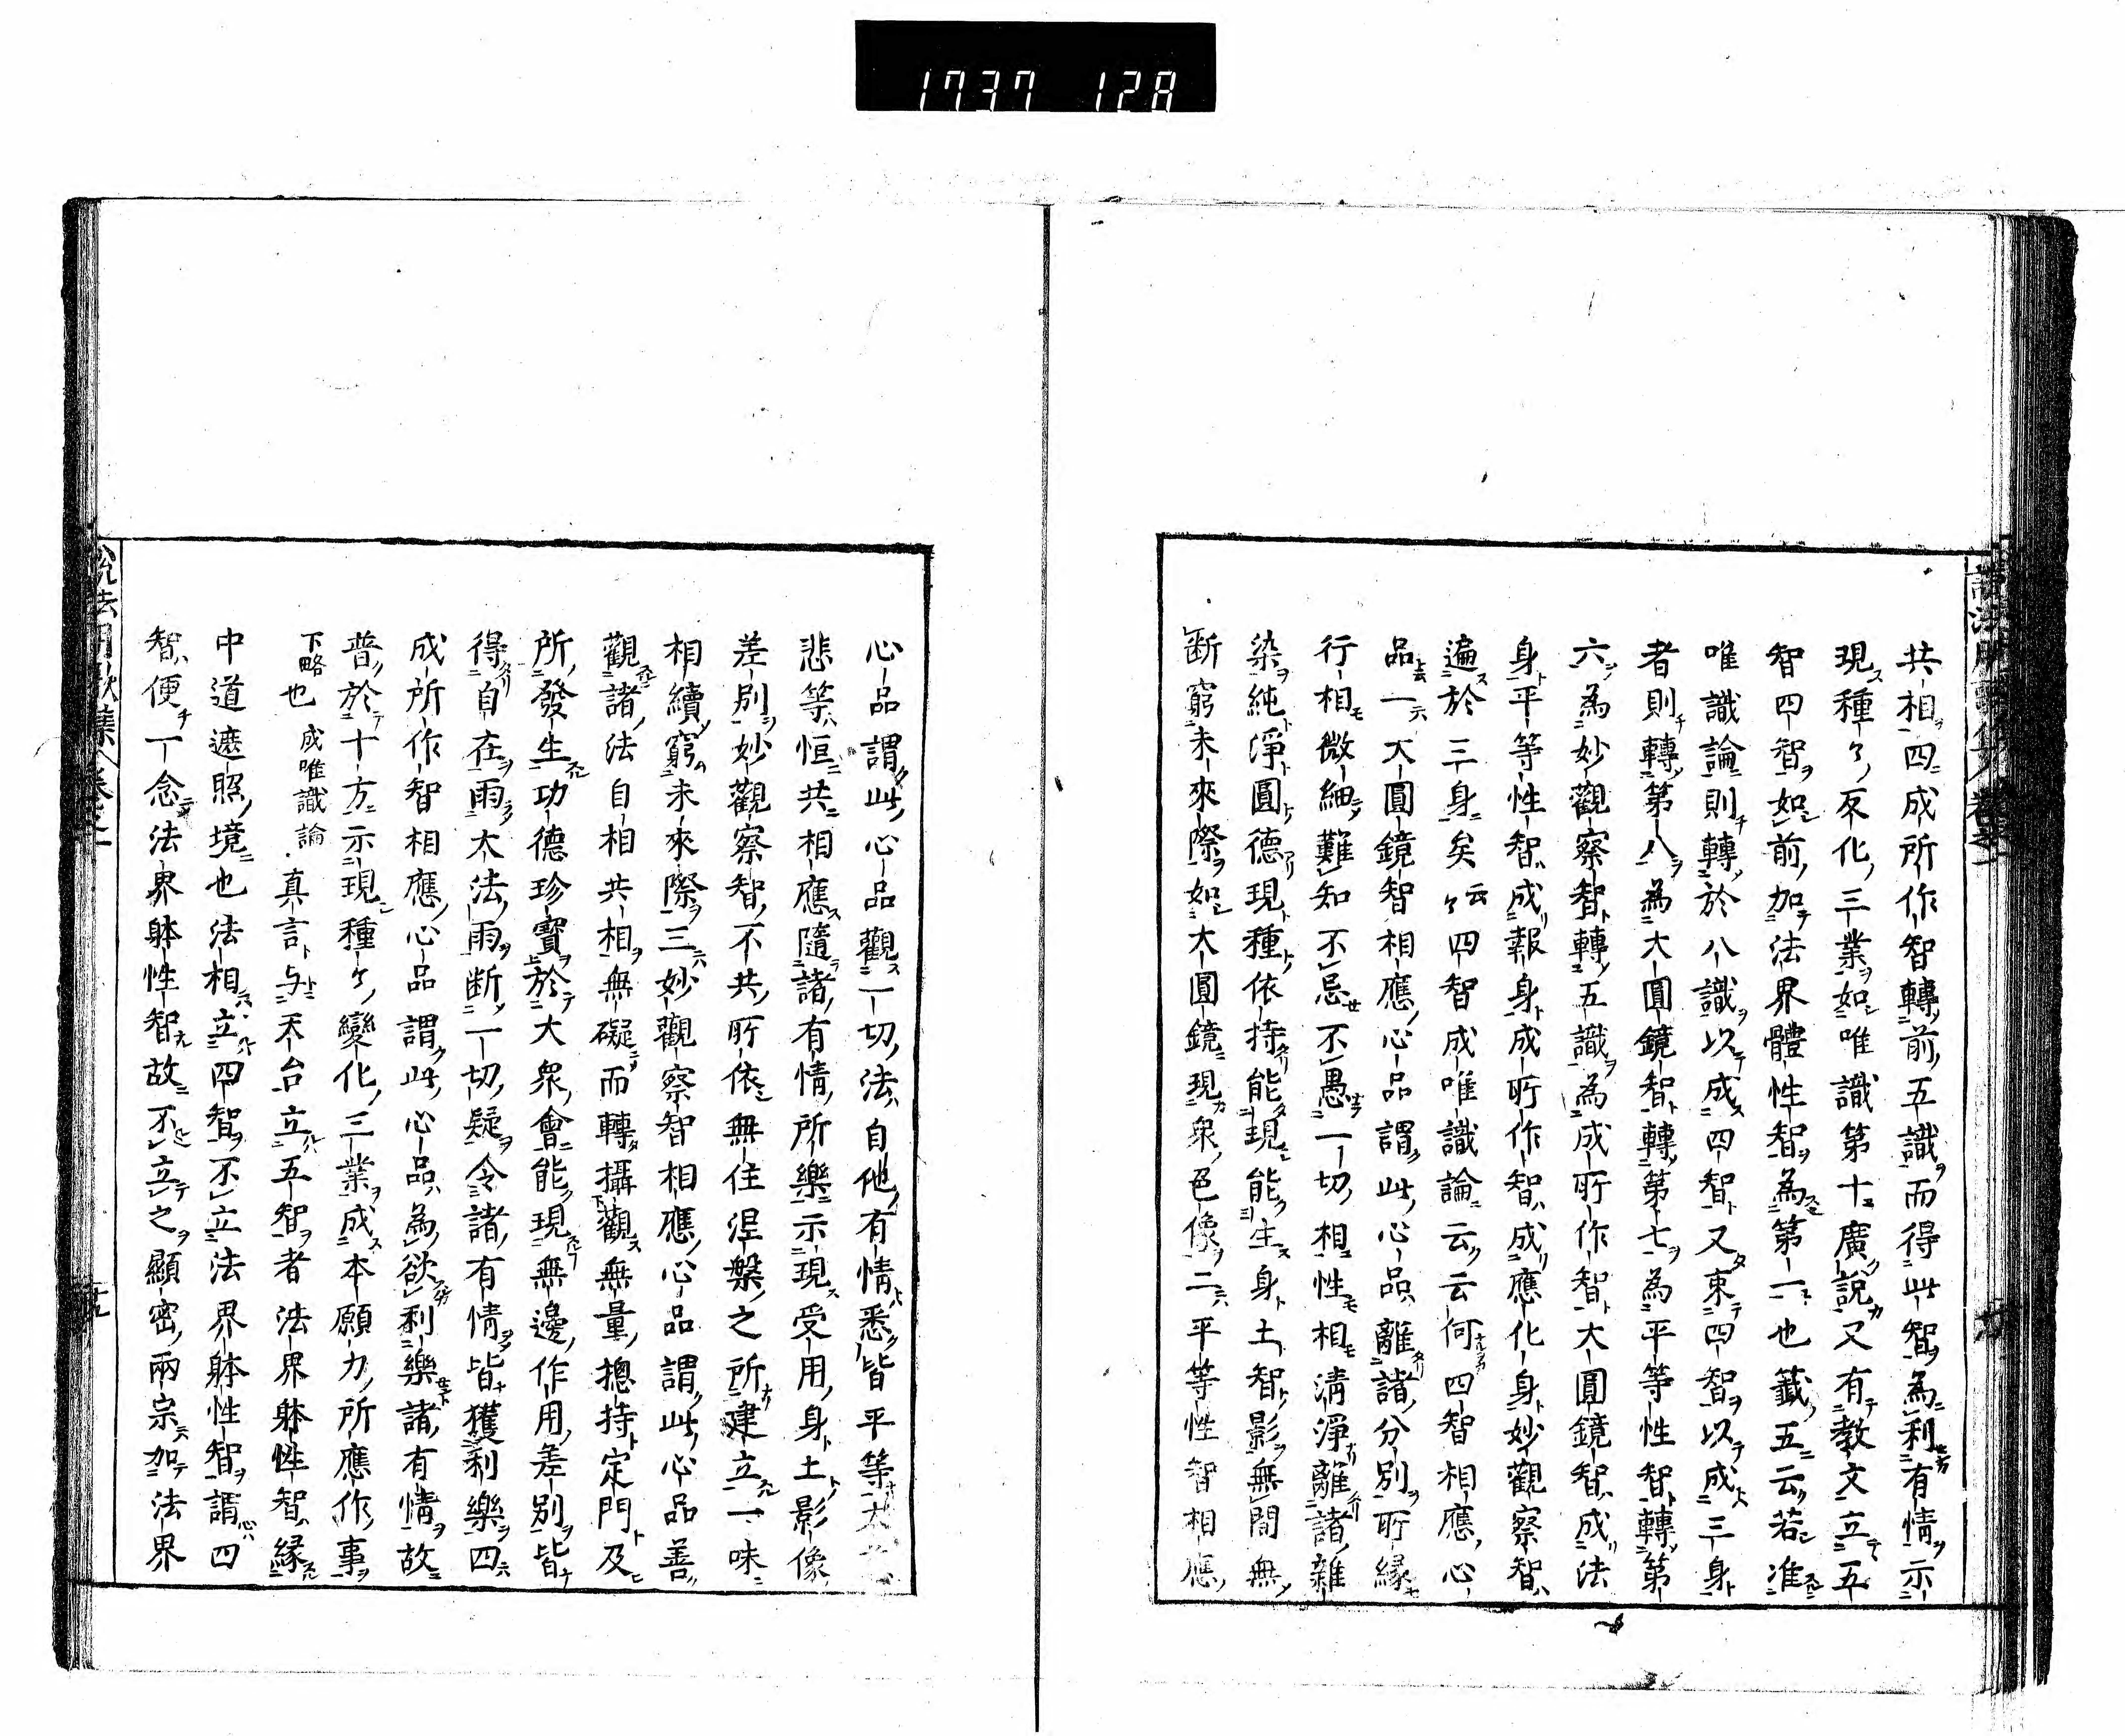 1737 128
共相四成所作智轉前五識而得此智為利有情示
現種々変化三業如唯識第十廣説又有教文立五
智四智如前加法界體性智為第一也籤五云若准
唯識論則轉於八識以成四智又束四智以成三身
者則轉第八為大圓鏡智轉第七為平等性智轉第
六為妙觀察智轉五識為成所作智大圓鏡智成法
身平等性智成報身成所作智成應化身妙觀察智
遍於三身矣云々四智成唯識論云云何四智相應心
品一大圓鏡智相應心品謂此心品離諸分別所縁
行相微細難知不忘不愚一切相性相清淨離諸雜
染純淨圓德現種依持能現能生身土智影無間無
断窮未來際如大圓鏡現衆色像二平等性智相應
心品謂此心品觀一切法自他有情悉皆平等大
悲等恒共相應隨諸有情所樂示現受用身土影像
差別妙觀察智不共所依無住涅槃之所建立一味
相續窮未來際三妙觀察智相應心品謂此心品善
觀諸法自相共相無礙而轉攝觀無量摠持定門及
所發生功德珍寳於大衆會能現無邊作用差別皆
得自在雨大法雨断一切疑令諸有情皆獲利樂四
成所作智相應心品謂此心品為欲利樂諸有情故
普於十方示現種々變化三業成本願力所應作事
下略也 成唯識論 真言与天台立五智者法界躰性智縁
中道遮照境也法相立四智不立法界躰性智謂四
智便一念法界躰性智故不立之顯密兩宗加法界